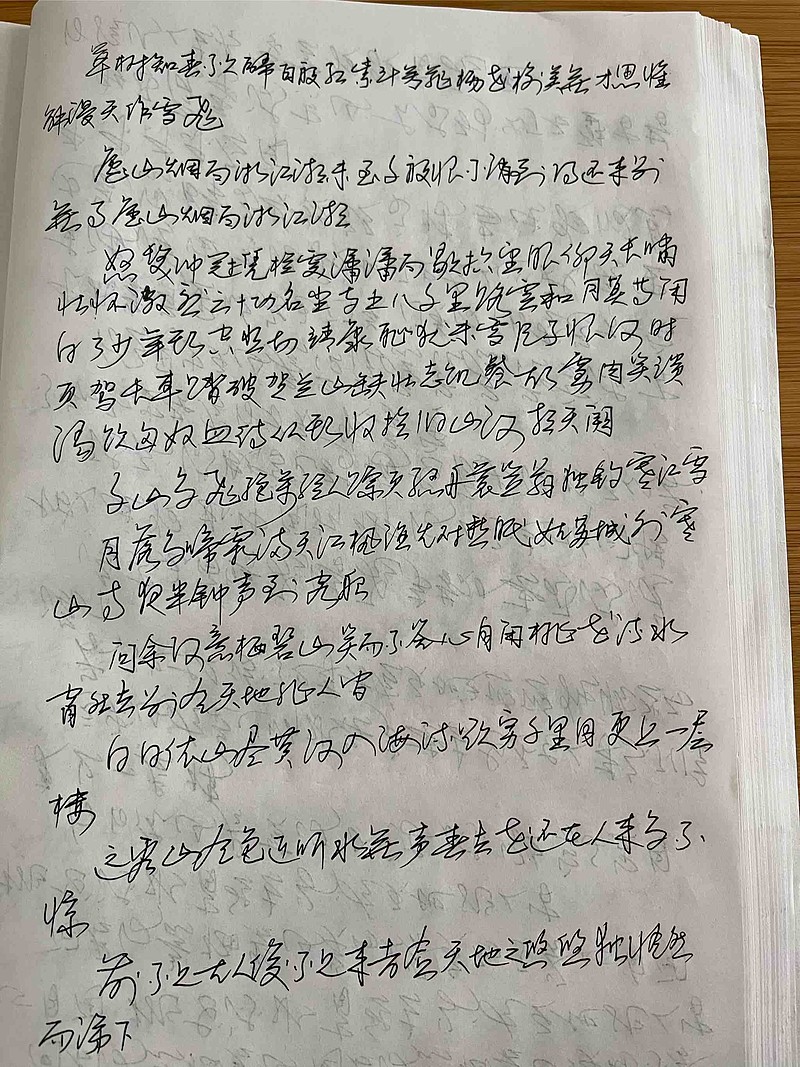 草树知春不久归百般红紫斗芳菲杨花榆荚无才思惟
解漫天作雪飞
庐山烟雨浙江潮未至千般恨不消到得还来别
无事庐山烟雨浙江潮
怒发冲冠凭栏处潇潇雨歇抬望眼仰天长啸
壮怀激烈三十功名尘与土八千里路云和月莫等闲
白了少年头空悲切靖康耻犹未雪臣子恨何时
灭驾长车踏破贺兰山缺壮志饥餐胡虏肉笑谈
渴饮匈奴血待从头收拾旧山河朝天阙
千山鸟飞绝万径人踪灭孤舟蓑笠翁独钓寒江雪
月落乌啼霜满天江枫渔火对愁眠姑苏城外寒
山寺夜半钟声到客船
问余何意栖碧山笑而不答心自闲桃花流水
窅然去别有天地非人间
白日依山尽黄河入海流欲穷千里目更上一层
楼
远看山有色近听水无声春去花还在人来鸟不
惊
前不见古人后不见来者念天地之悠悠独怆然
而涕下